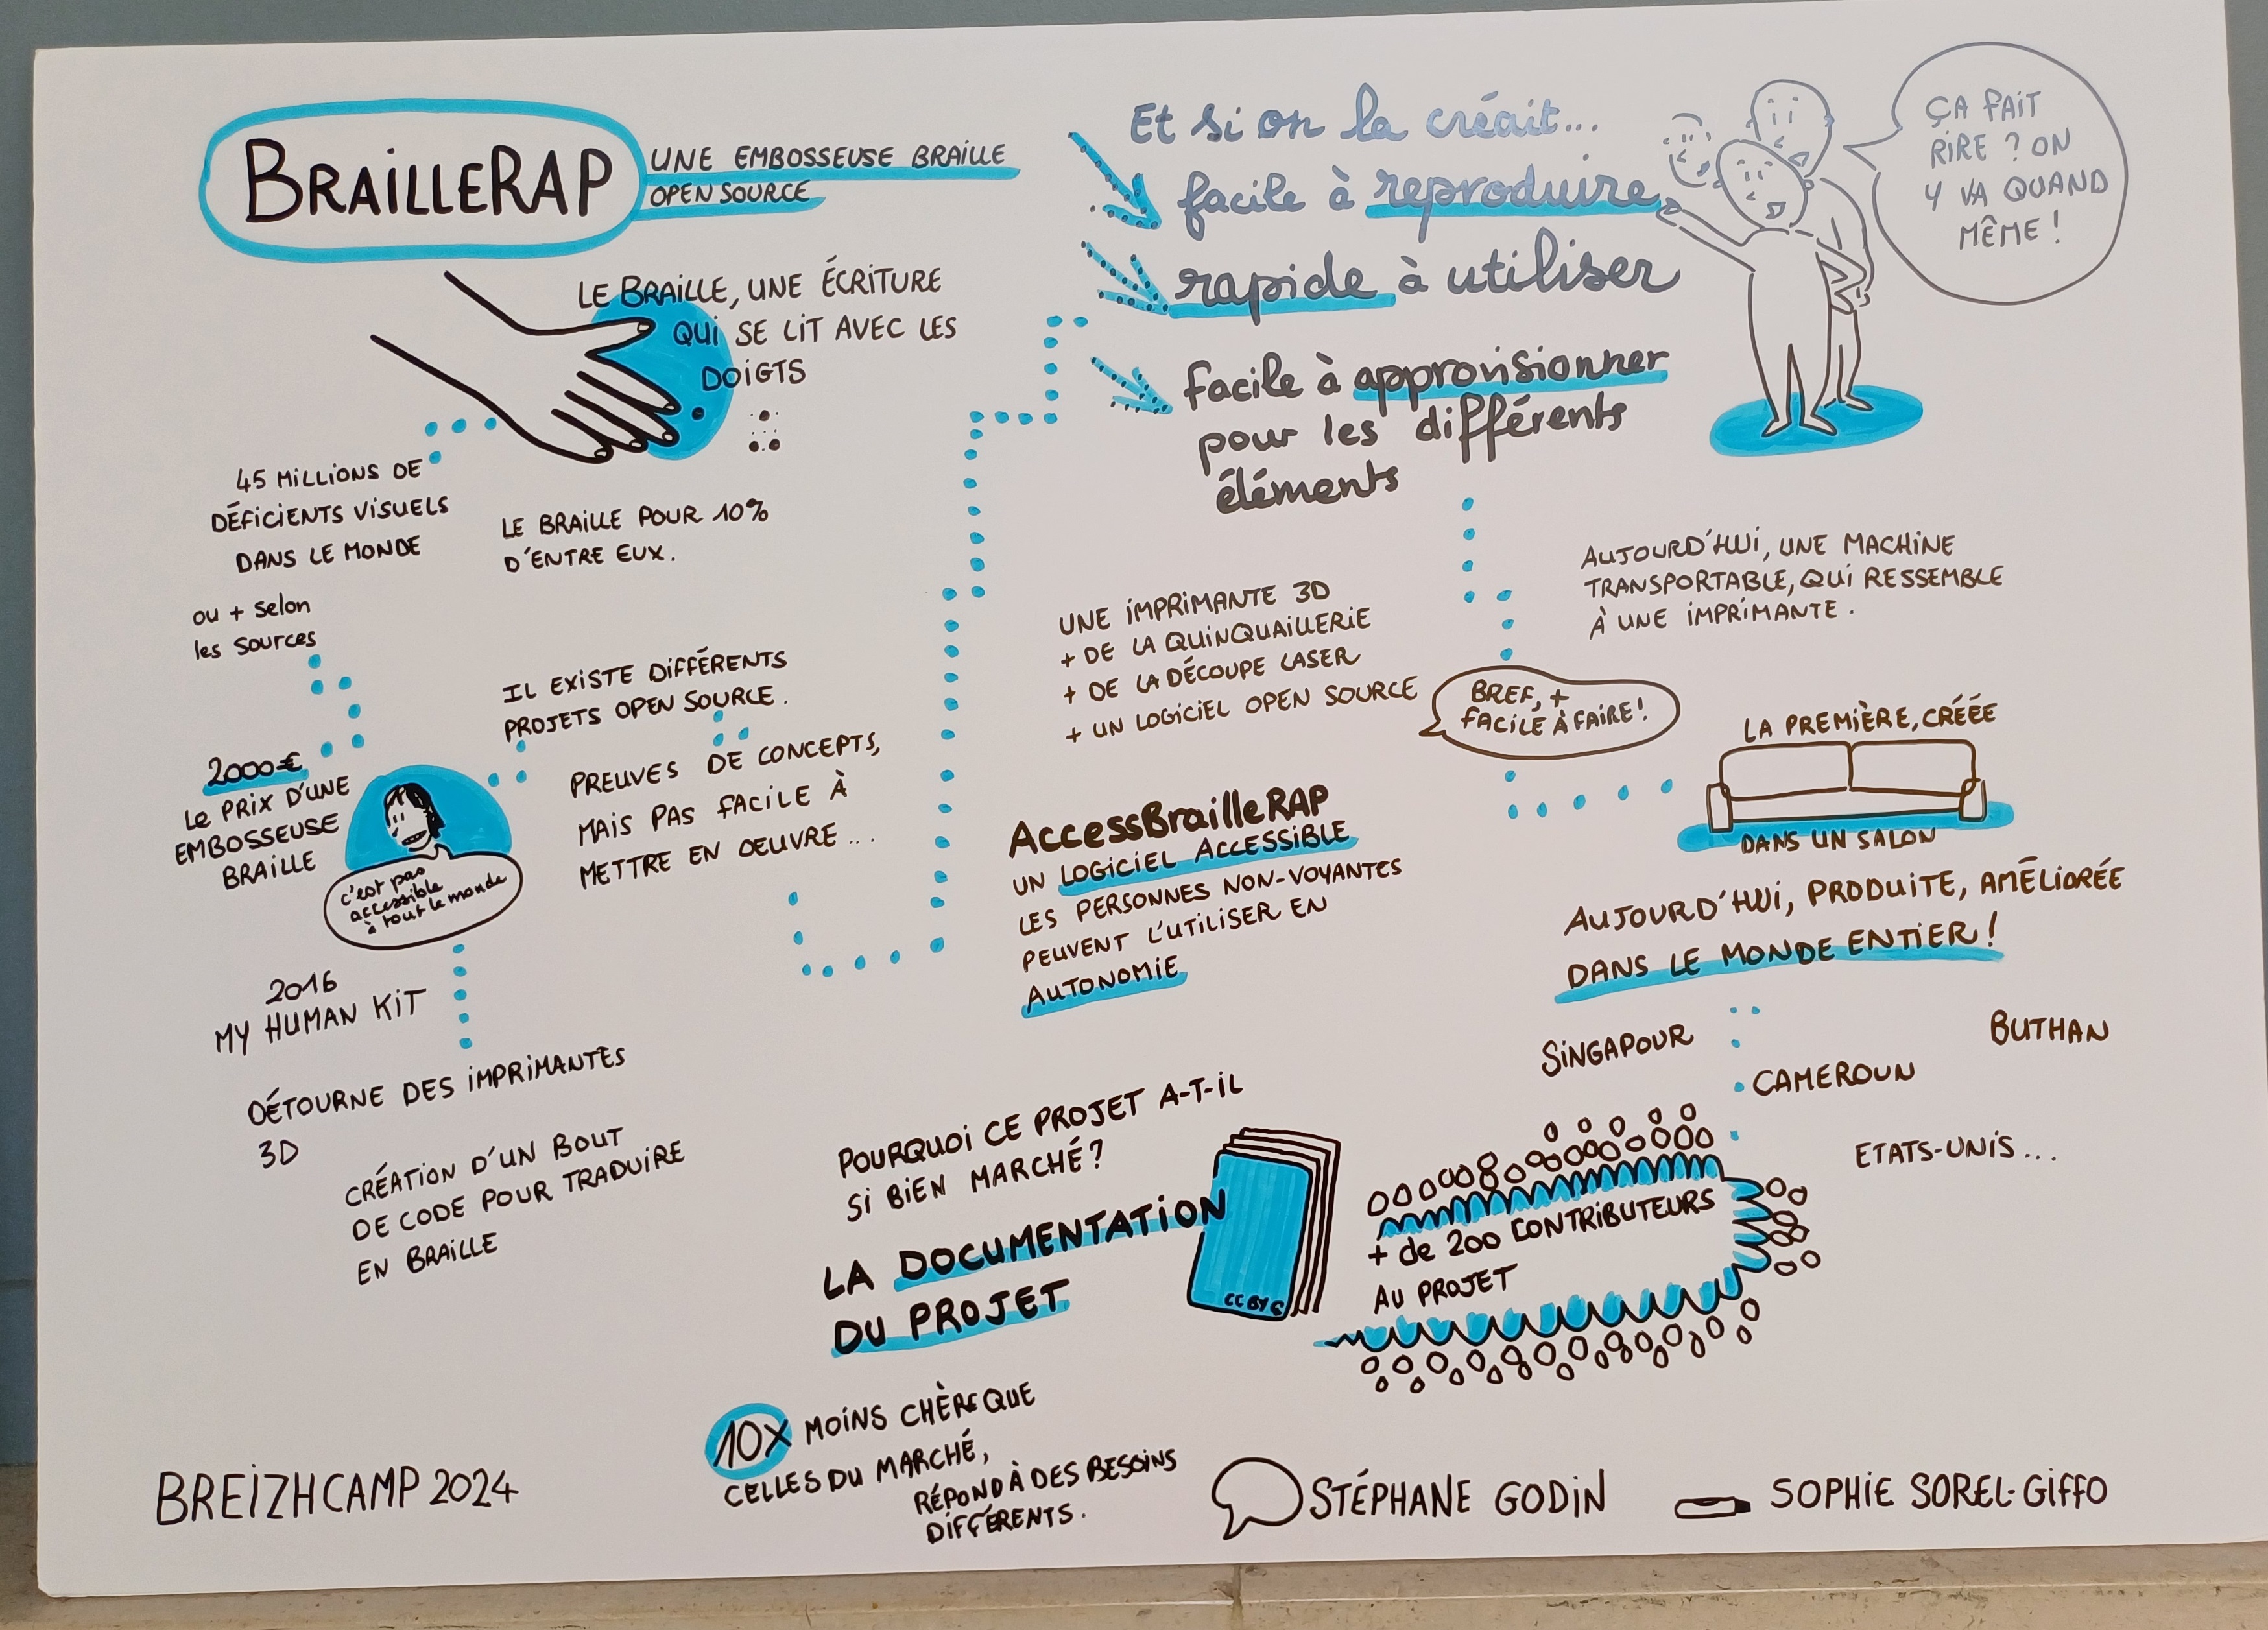 BRAILLERAP
UNE EMBOSSEUSE BRAILLE
OPEN SOURCE
LE BRAILLE, UNE ÉCRITURE
QUI SE LIT AVEC LES
DOIGTS
45 MILLIONS DE
DÉFICIENTS VISUELS
DANS LE MONDE
ou + selon
les sources
LE BRAILLE POUR 10%
D'ENTRE EUX.
2000€
LE PRIX D'UNE
EMBOSSEUSE
BRAILLE
c'est pas
accessible
à tout le monde
IL EXISTE DIFFÉRENTS
PROJETS OPEN SOURCE.
PREUVES DE CONCEPTS,
MAIS PAS FACILE À
METTRE EN OEUVRE...
2016
MY HUMAN KIT
DÉTOURNE DES IMPRIMANTES
3D
CRÉATION D'UN BOUT
DE CODE POUR TRADUIRE
EN BRAILLE
Et si on la créait...
facile à reproduire
rapide à utiliser
facile à approvisionner
pour les différents
éléments
ÇA FAIT
RIRE ? ON
Y VA QUAND
MÊME !
UNE IMPRIMANTE 3D
+ DE LA QUINQUAILLERIE
+ DE LA DÉCOUPE LASER
+ UN LOGICIEL OPEN SOURCE
BREF, +
FACILE À FAIRE !
AUJOURD'HUI, UNE MACHINE
TRANSPORTABLE, QUI RESSEMBLE
À UNE IMPRIMANTE.
LA PREMIÈRE, CRÉÉE
DANS UN SALON
AccessBrailleRAP
UN LOGICIEL ACCESSIBLE
LES PERSONNES NON-VOYANTES
PEUVENT L'UTILISER EN
AUTONOMIE
AUJOURD'HUI, PRODUITE, AMÉLIORÉE
DANS LE MONDE ENTIER !
SINGAPOUR
BUTHAN
CAMEROUN
ETATS-UNIS...
POURQUOI CE PROJET A-T-IL
SI BIEN MARCHÉ ?
LA DOCUMENTATION
DU PROJET
+ de 200 CONTRIBUTEURS
AU PROJET
10X MOINS CHÈRE QUE
CELLES DU MARCHÉ,
RÉPOND À DES BESOINS
DIFFÉRENTS.
BREIZHCAMP 2024
STÉPHANE GODIN
SOPHIE SOREL-GIFFO